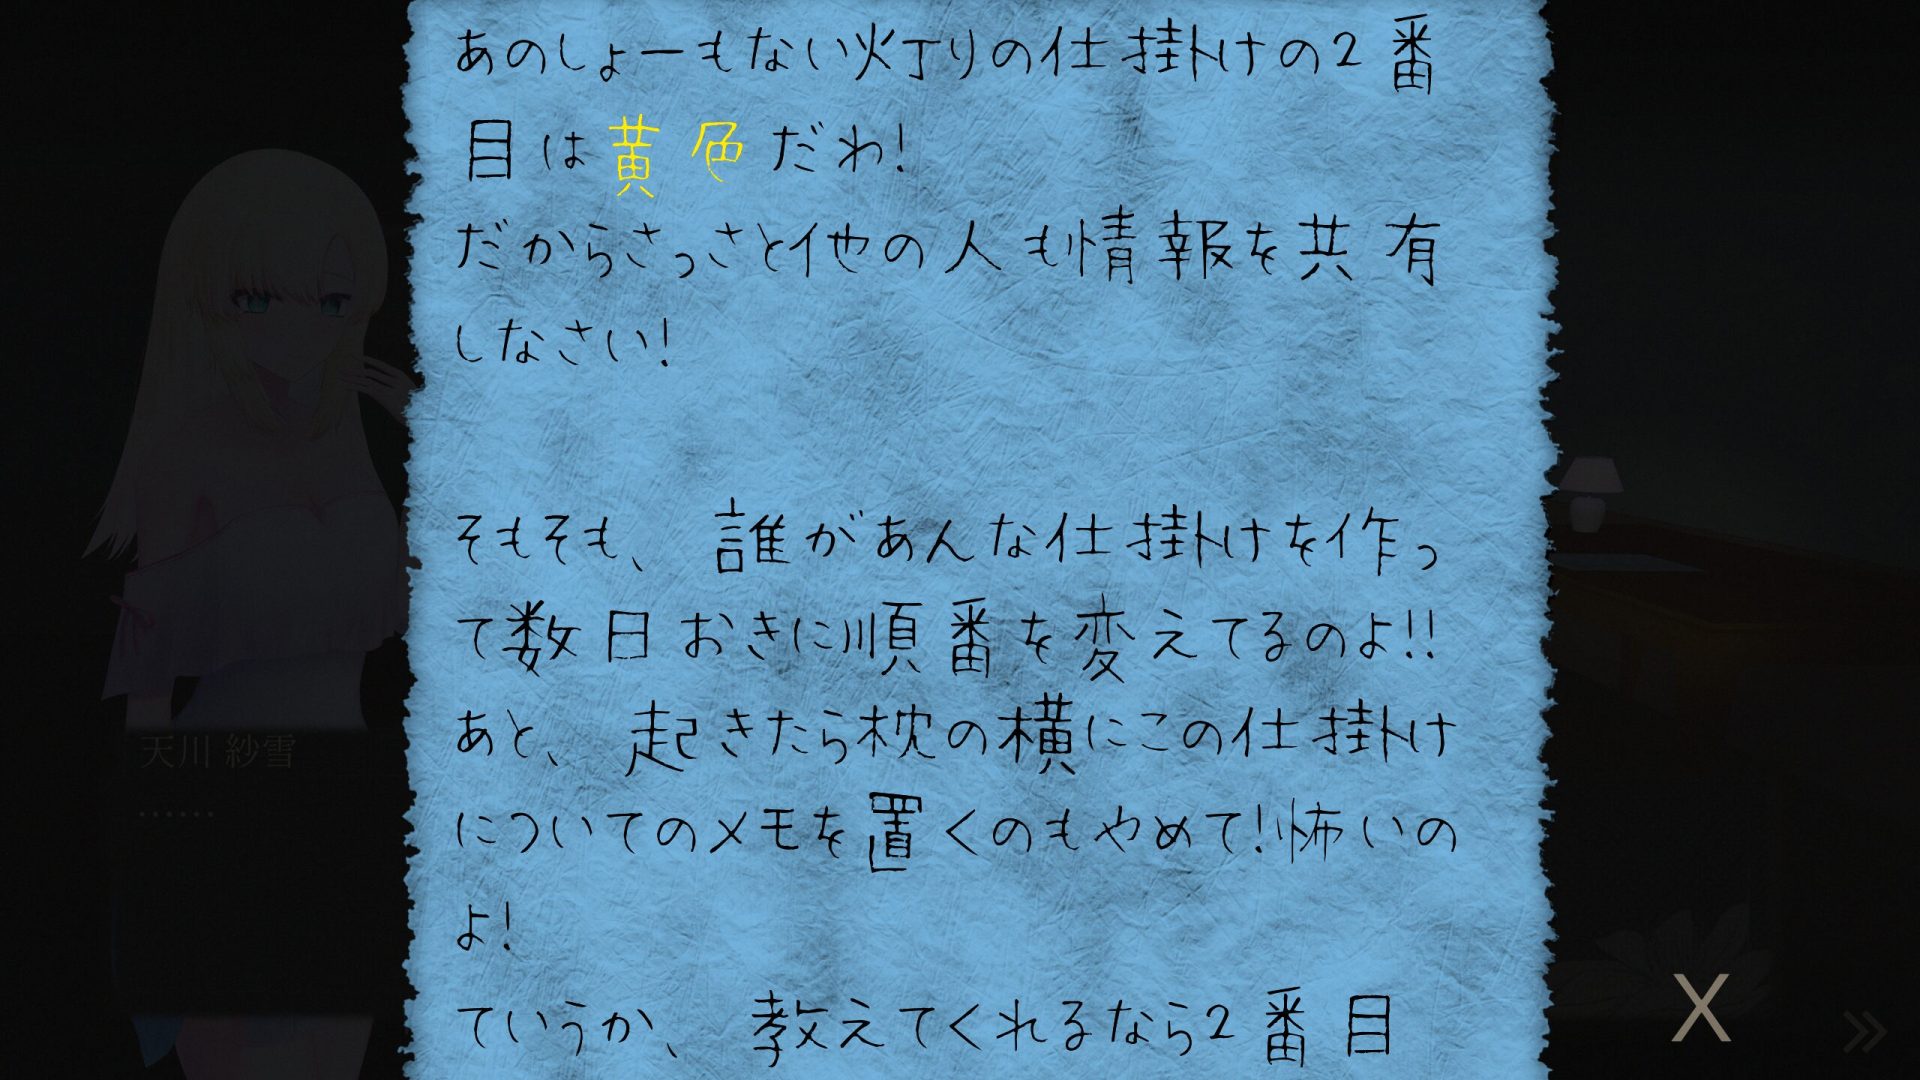 あのしょーもない灯りの仕掛けの2番
目は黄色だわ!
だからさっさと他の人も情報を共有
しなさい!
そもそも、誰があんな仕掛けを作っ
て数日おきに順番を変えてるのよ!!
あと、起きたら枕の横にこの仕掛け
についてのメモを置くのもやめて!怖いの
よ!
ていうか、教えてくれるなら2番目
天川 紗雪
......
X